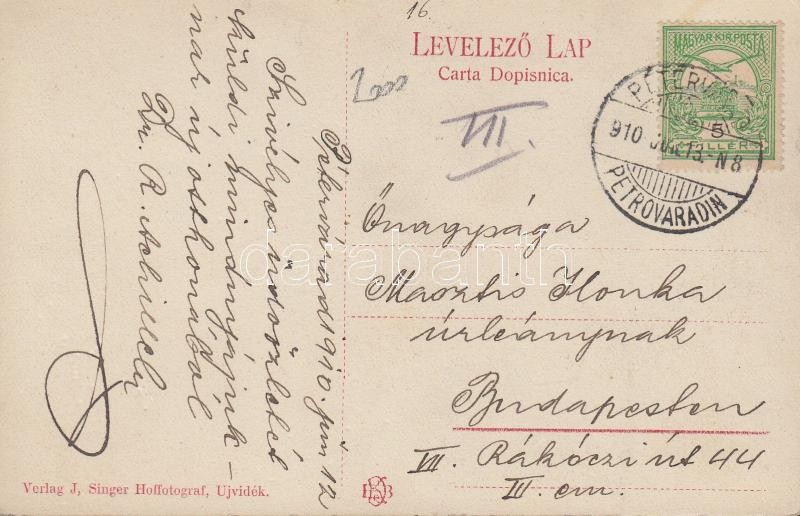 16.
LEVELEZŐ LAP
Carta Dopisnica.
MAGYAR KIR. POSTA
5
FILLÉR
910 JUN. 13.-N8
PETROVARADIN
2000
VII.
Pétervárad 1910. jun 12
Szivélyes üdvözletét
küldi mindnyájuk-
nak új otthonából
Dr. R.
Őnagysága
Masztis Ilonka
úrleánynak
Budapesten
VII. Rákóczi út 44
III. em.
Verlag J, Singer Hoffotograf, Ujvidék.
darabanth